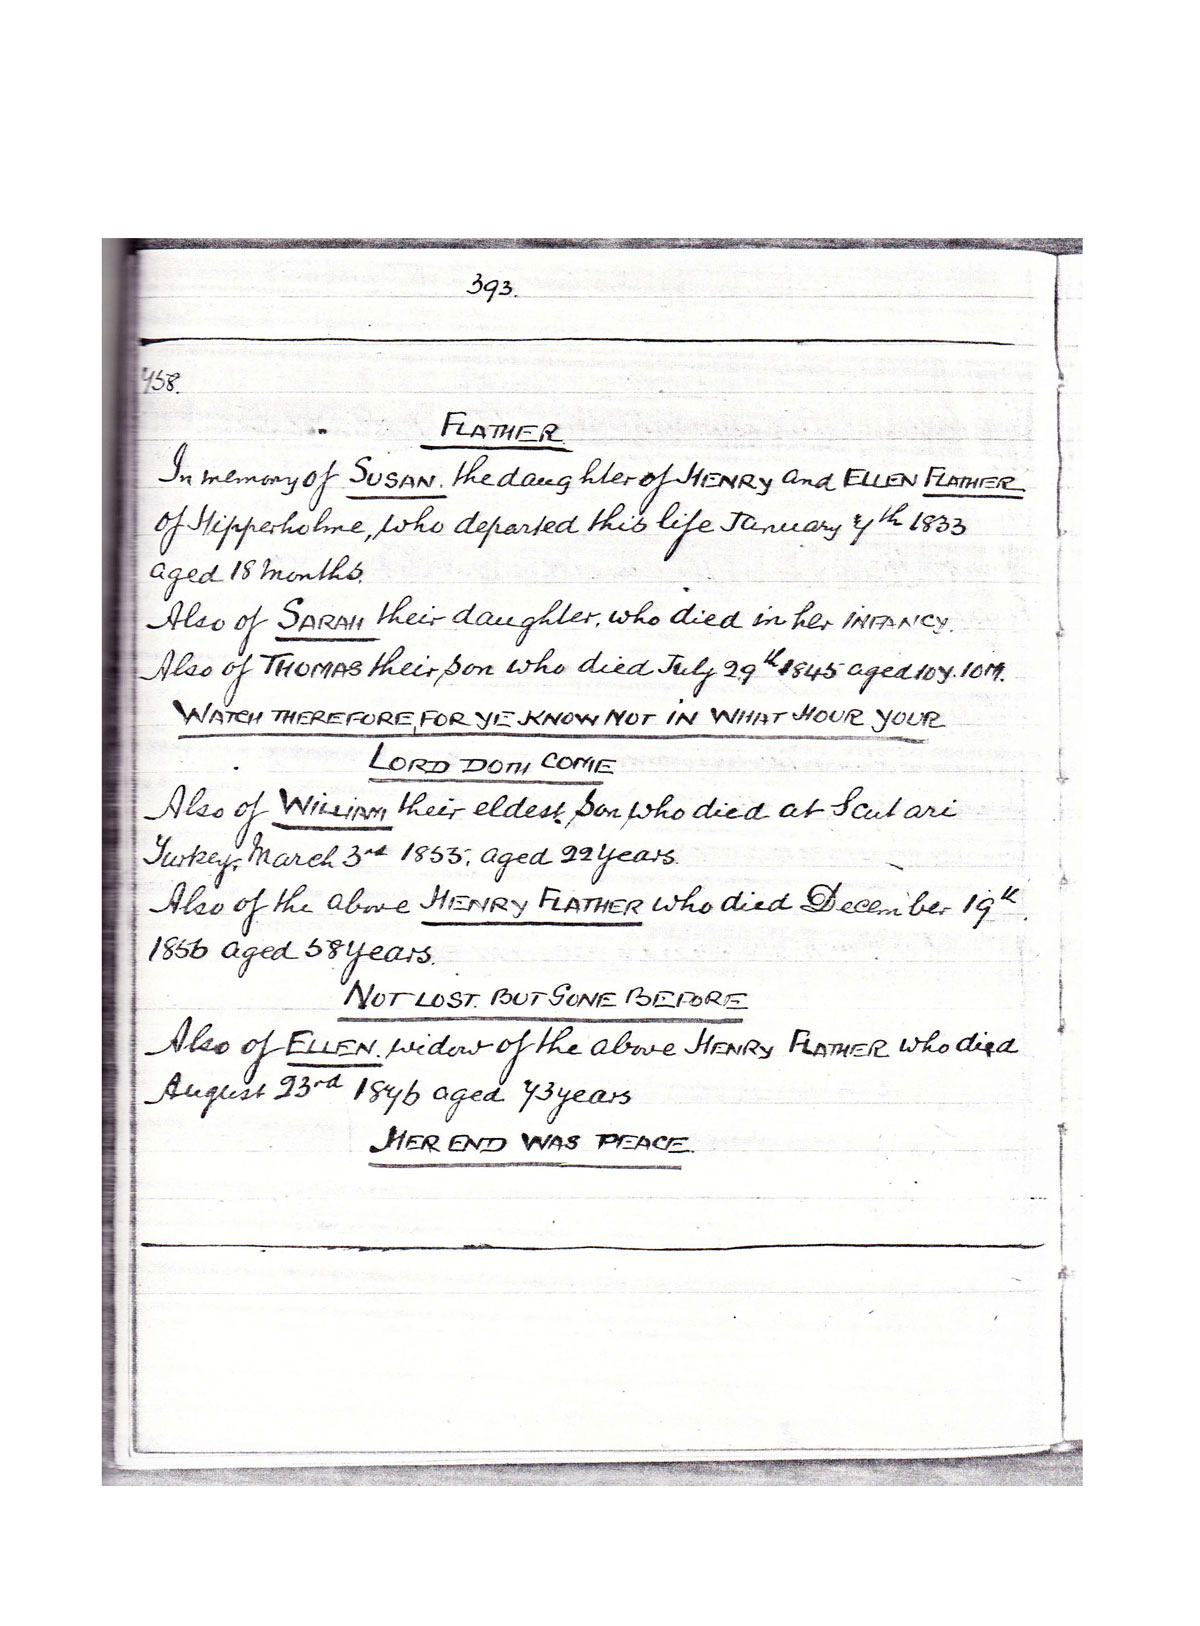 393.
758.
FLATHER
In memory of SUSAN. the daughter of HENRY and ELLEN FLATHER
of Hipperholme, who departed this life January 7th 1833
aged 18 months.
Also of SARAH their daughter, who died in her INFANCY.
Also of THOMAS their son who died July 29th 1845 aged 10y. 10M.
WATCH THEREFORE, FOR YE KNOW NOT IN WHAT HOUR YOUR
LORD DOTH COME
Also of WILLIAM their eldest son, who died at Scutari
Turkey, March 3rd 1855, aged 22 years.
Also of the above HENRY FLATHER who died December 19th
1856 aged 58 years.
NOT LOST. BUT GONE BEFORE
Also of ELLEN. widow of the above HENRY FLATHER who died
August 23rd 1876 aged 73 years
HER END WAS PEACE.